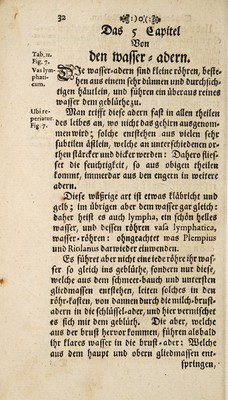 32 ❧):o(❧
Das 5 Capitel
Von
den wasser-adern.
Tab. 11.
Fig. 7.
Vas lym-
phati-
cum.
Die wasser-adern sind kleine röhren, beste-
hen aus einem sehr dünnen und durchsichti-
gen häutlein, und führen ein überaus reines
wasser dem geblüthe zu.
Ubi re-
periatur.
Fig. 7.
Man trifft diese adern fast in allen theilen
des leibes an, wo nicht das gehirn ausgenom-
men wird; solche entstehen aus vielen sehr
subtilen ästlein, welche an unterschiedenen or-
then stärcker und dicker werden: Dahero fliess-
set die feuchtigkeit, so aus obigen theilen
kommt, immerdar aus den engen in weitere
adern.
Diese wäßrige art ist etwas kläbricht und
gelb; im übrigen aber dem wasser gar gleich:
daher heist es auch lympha, ein schön helles
wasser, und dessen röhren vasa lymphatica,
wasser-röhren: ohngeachtet was Plempius
und Riolanus darwieder einwenden.
Es führet aber nicht eine iede röhre ihr was-
ser so gleich ins geblüthe, sondern nur diese,
welche aus dem schmeer-bauch und untersten
gliedmassen entstehen, leiten solches in den
röhr-kasten, von dannen durch die milch-brust-
adern in die schlüssel-ader, und hier vermischet
es sich mit dem geblüth. Die aber, welche
aus der brust hervor kommen, führen alsbald
ihr klares wasser in die brust-ader: Welche
aus dem haupt und obern gliedmassen ent-
springen,